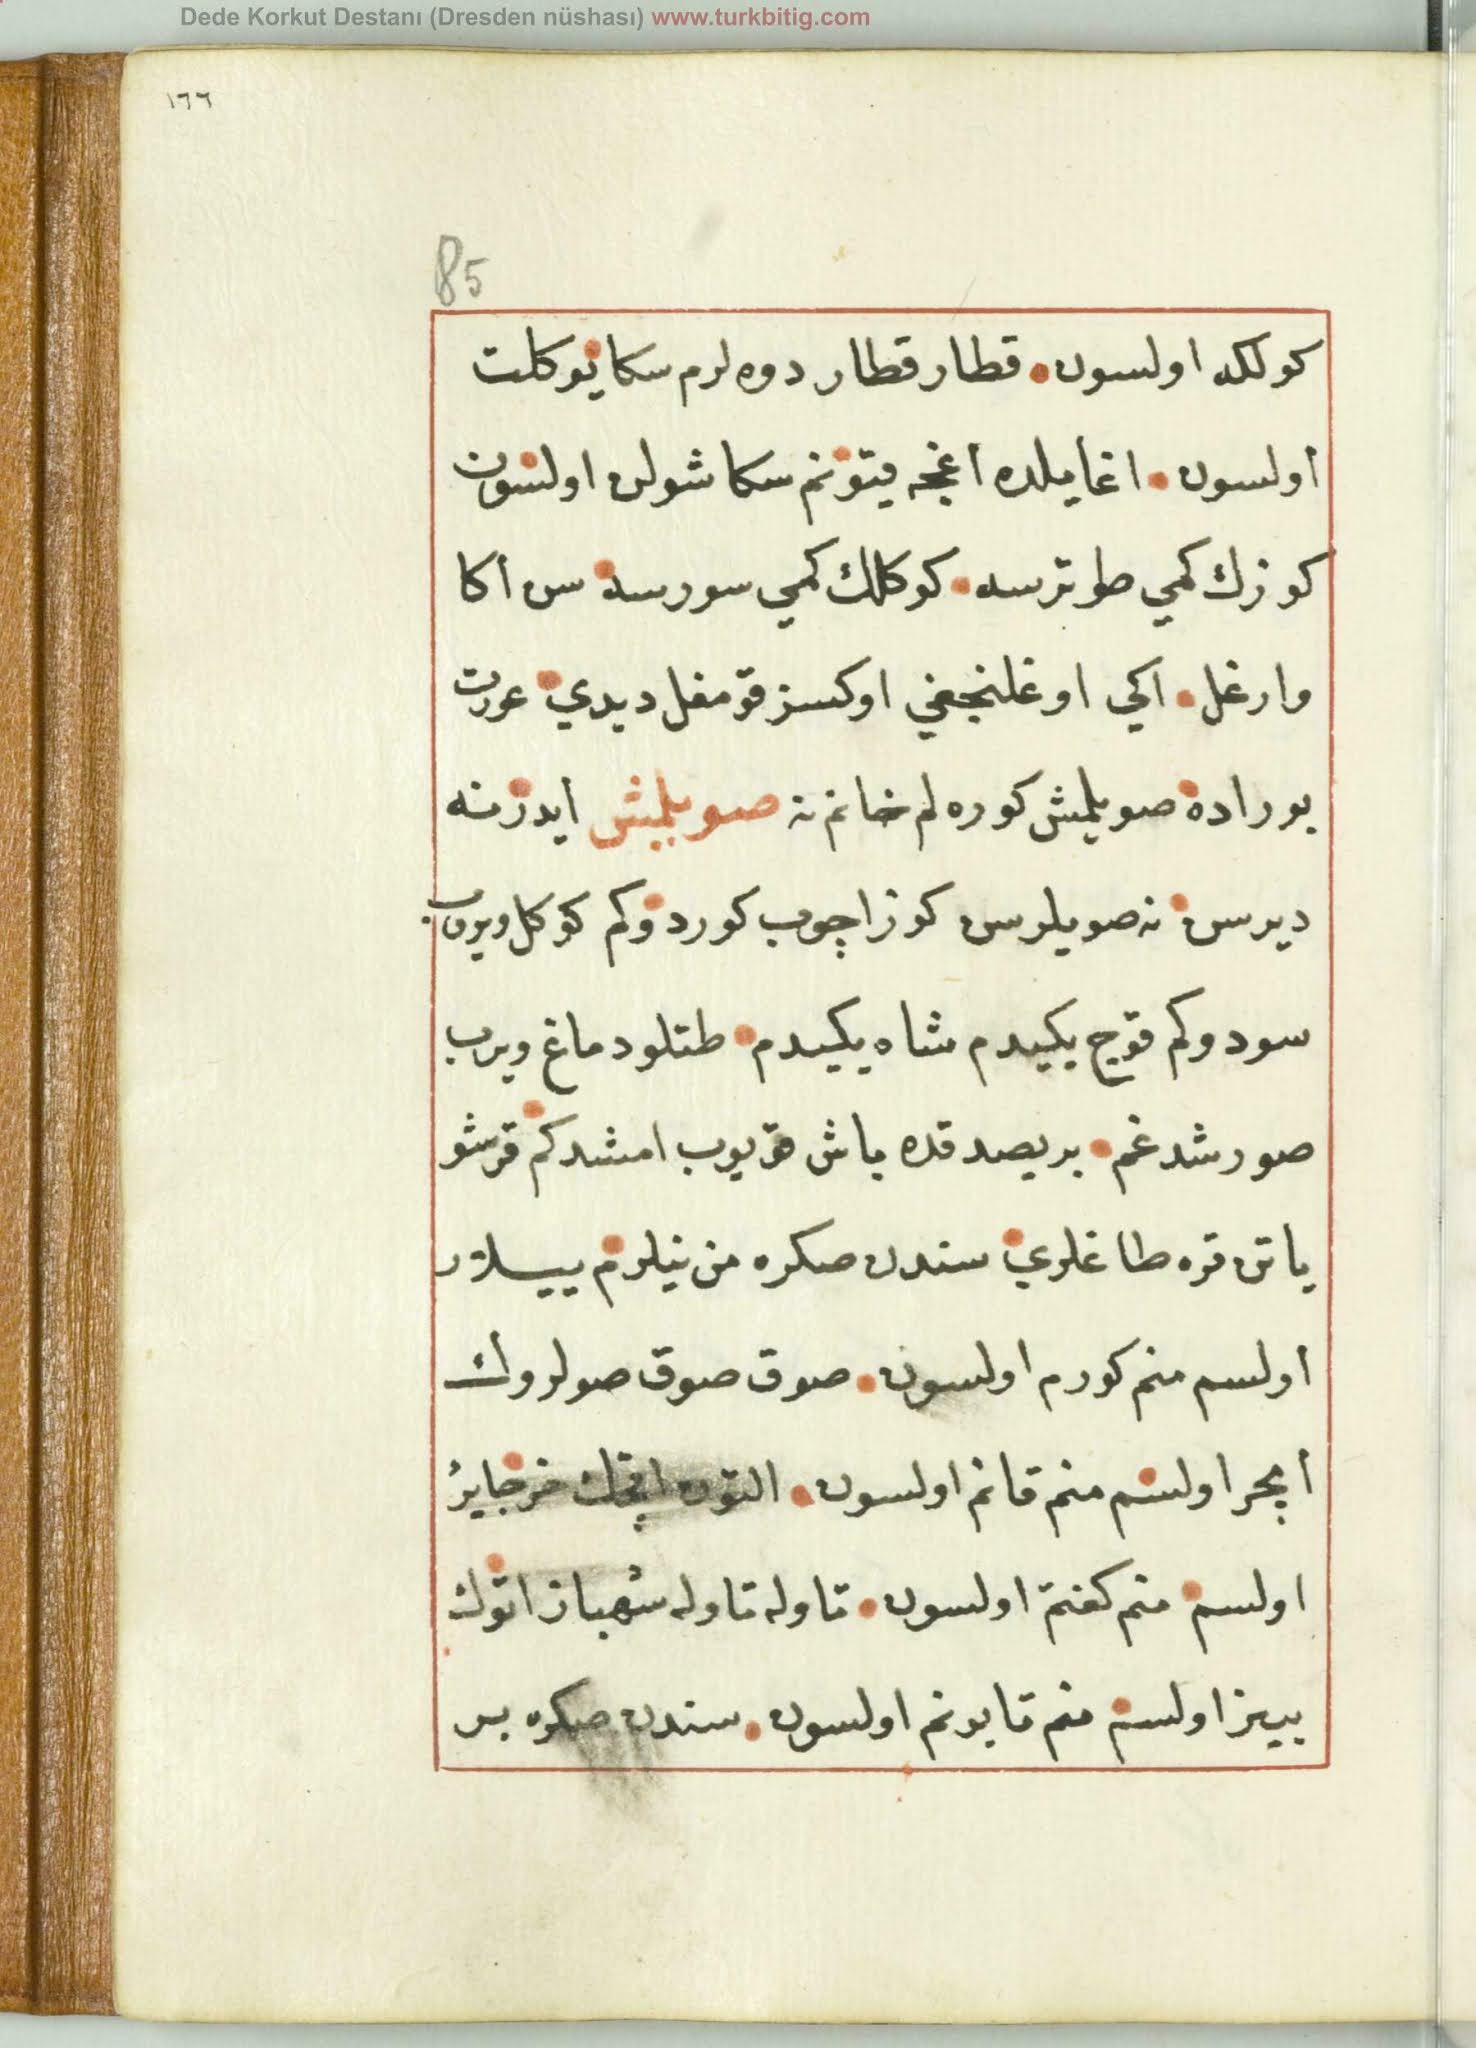 Dede Korkut Destanı (Dresden nüshası) www.turkbitig.com
١٦٦
85
كولكه اولسون قطار قطار دوه لرم سكا يوكلت
أولسون اغايلده أغجه قيتونم سكا شولن اولسون
كوزك كمي طوترسه كوكلك كمي سورسه سن أكا
وارغل اكي اوغلنجغي اوكسز قومغل ديدي عورت
بوراده صويلمش كوره لم خانم نه صويلمش أيدر نه
ديرسن نه صويلرسن كوز اچوب كوردوكم كوكل ويروب
سودوكم قوچ يكيدم شاه يكيدم طتلو دماغ ويرب
صورشدغم بر يصدقده باش قويوب امشدكم قرشو
ياتن قره طاغلري سندن صكره من نيلرم ييلار
أولسم منم كورم اولسون صوق صوق صولروك
أچر اولسم منم قانم اولسون التون اقچك خرجاير
اولسم منم كفنم اولسون تاوله تاوله شهباز اتوك
بينر اولسم منم تابوتم اولسون سندن صكره بر